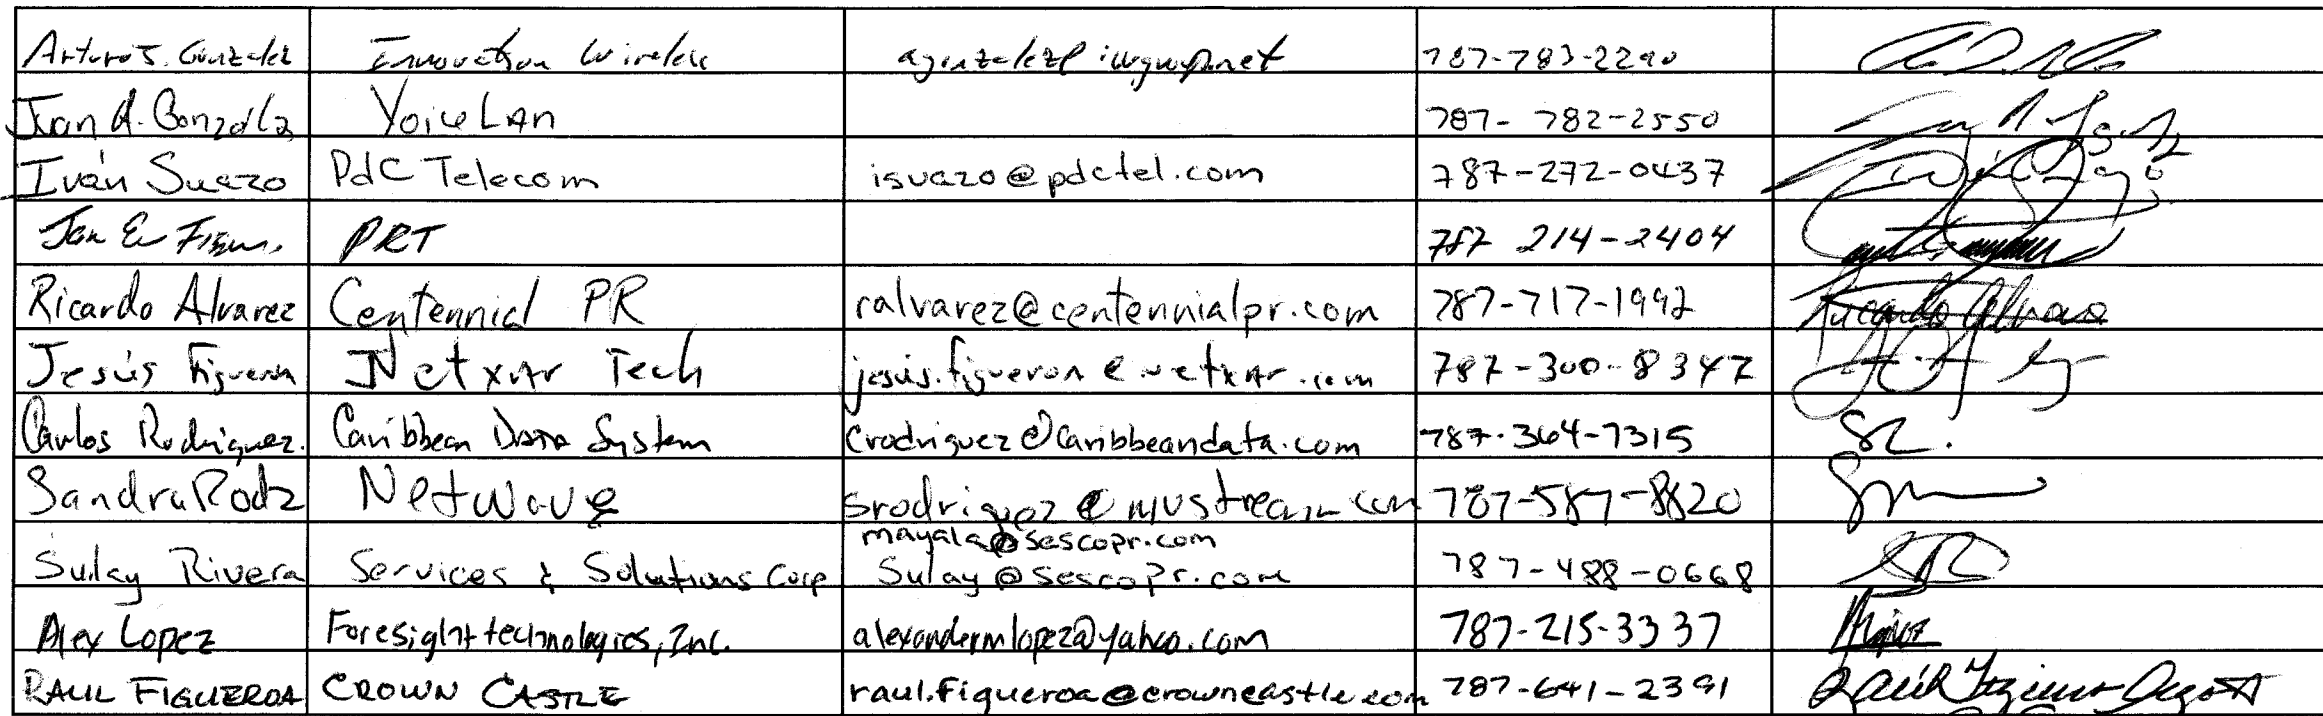 Arturo J. Gonzalez Innovation Wireless agonzalez@iwgroup.net 787-783-2290
Juan A. Gonzalez VoiceLAn 787-782-2550
Iván Suazo PdC Telecom isuazo@pdctel.com 787-272-0437
PRT 787 214-2404
Ricardo Alvarez Centennial PR ralvarez@centennialpr.com 787-717-1992 Ricardo Alvarez
Jesús Figueroa NetxAr Tech jesús.figueroa@netxar.com 787-300-8347
Carlos Rodriguez. Caribbean Data System crodriguez@caribbeandata.com 787-364-7315 SR.
Sandra Rodz Netwave srodriguez@mustream.com 787-587-8820
mayala@sescopr.com
Sulay Rivera Services & Solutions Corp Sulay@sescopr.com 787-488-0668
Alex Lopez Foresight technologies, Inc. alexandermlopez@yahoo.com 787-215-3337
RAUL FIGUEROA CROWN CASTLE raul.Figueroa@crowncastle.com 787-641-2391